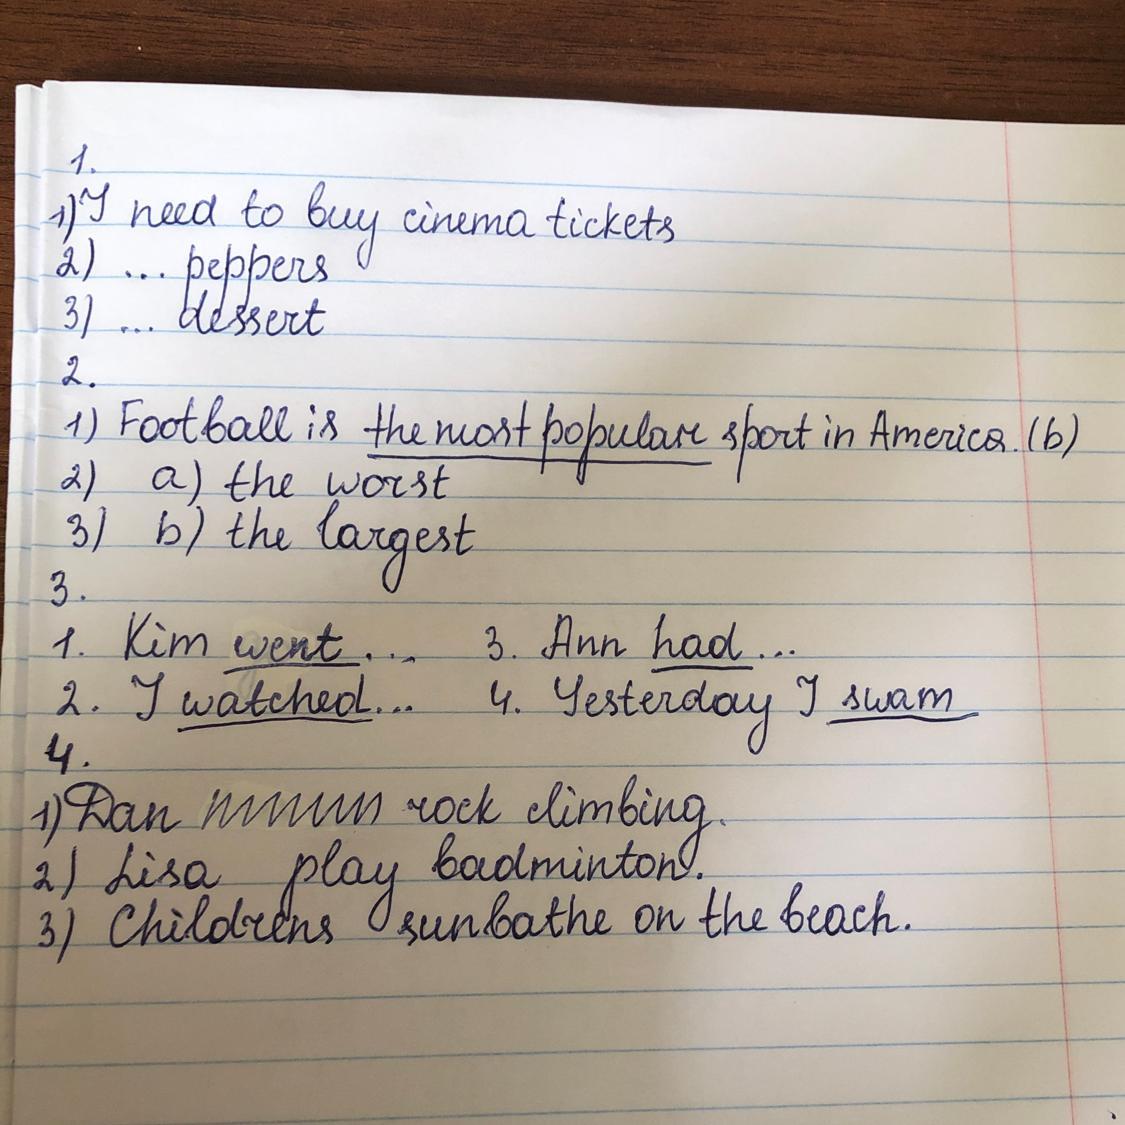 1.
1) I need to buy cinema tickets
2) ... peppers
3) ... dessert
2.
1) Football is the most popular sport in America. (b)
2) a) the worst
3) b) the largest
3.
1. Kim went ... 3. Ann had ...
2. I watched... 4. Yesterday I swam
4.
1) Dan rock climbing.
2) Lisa play badminton.
3) Childrens sunbathe on the beach.